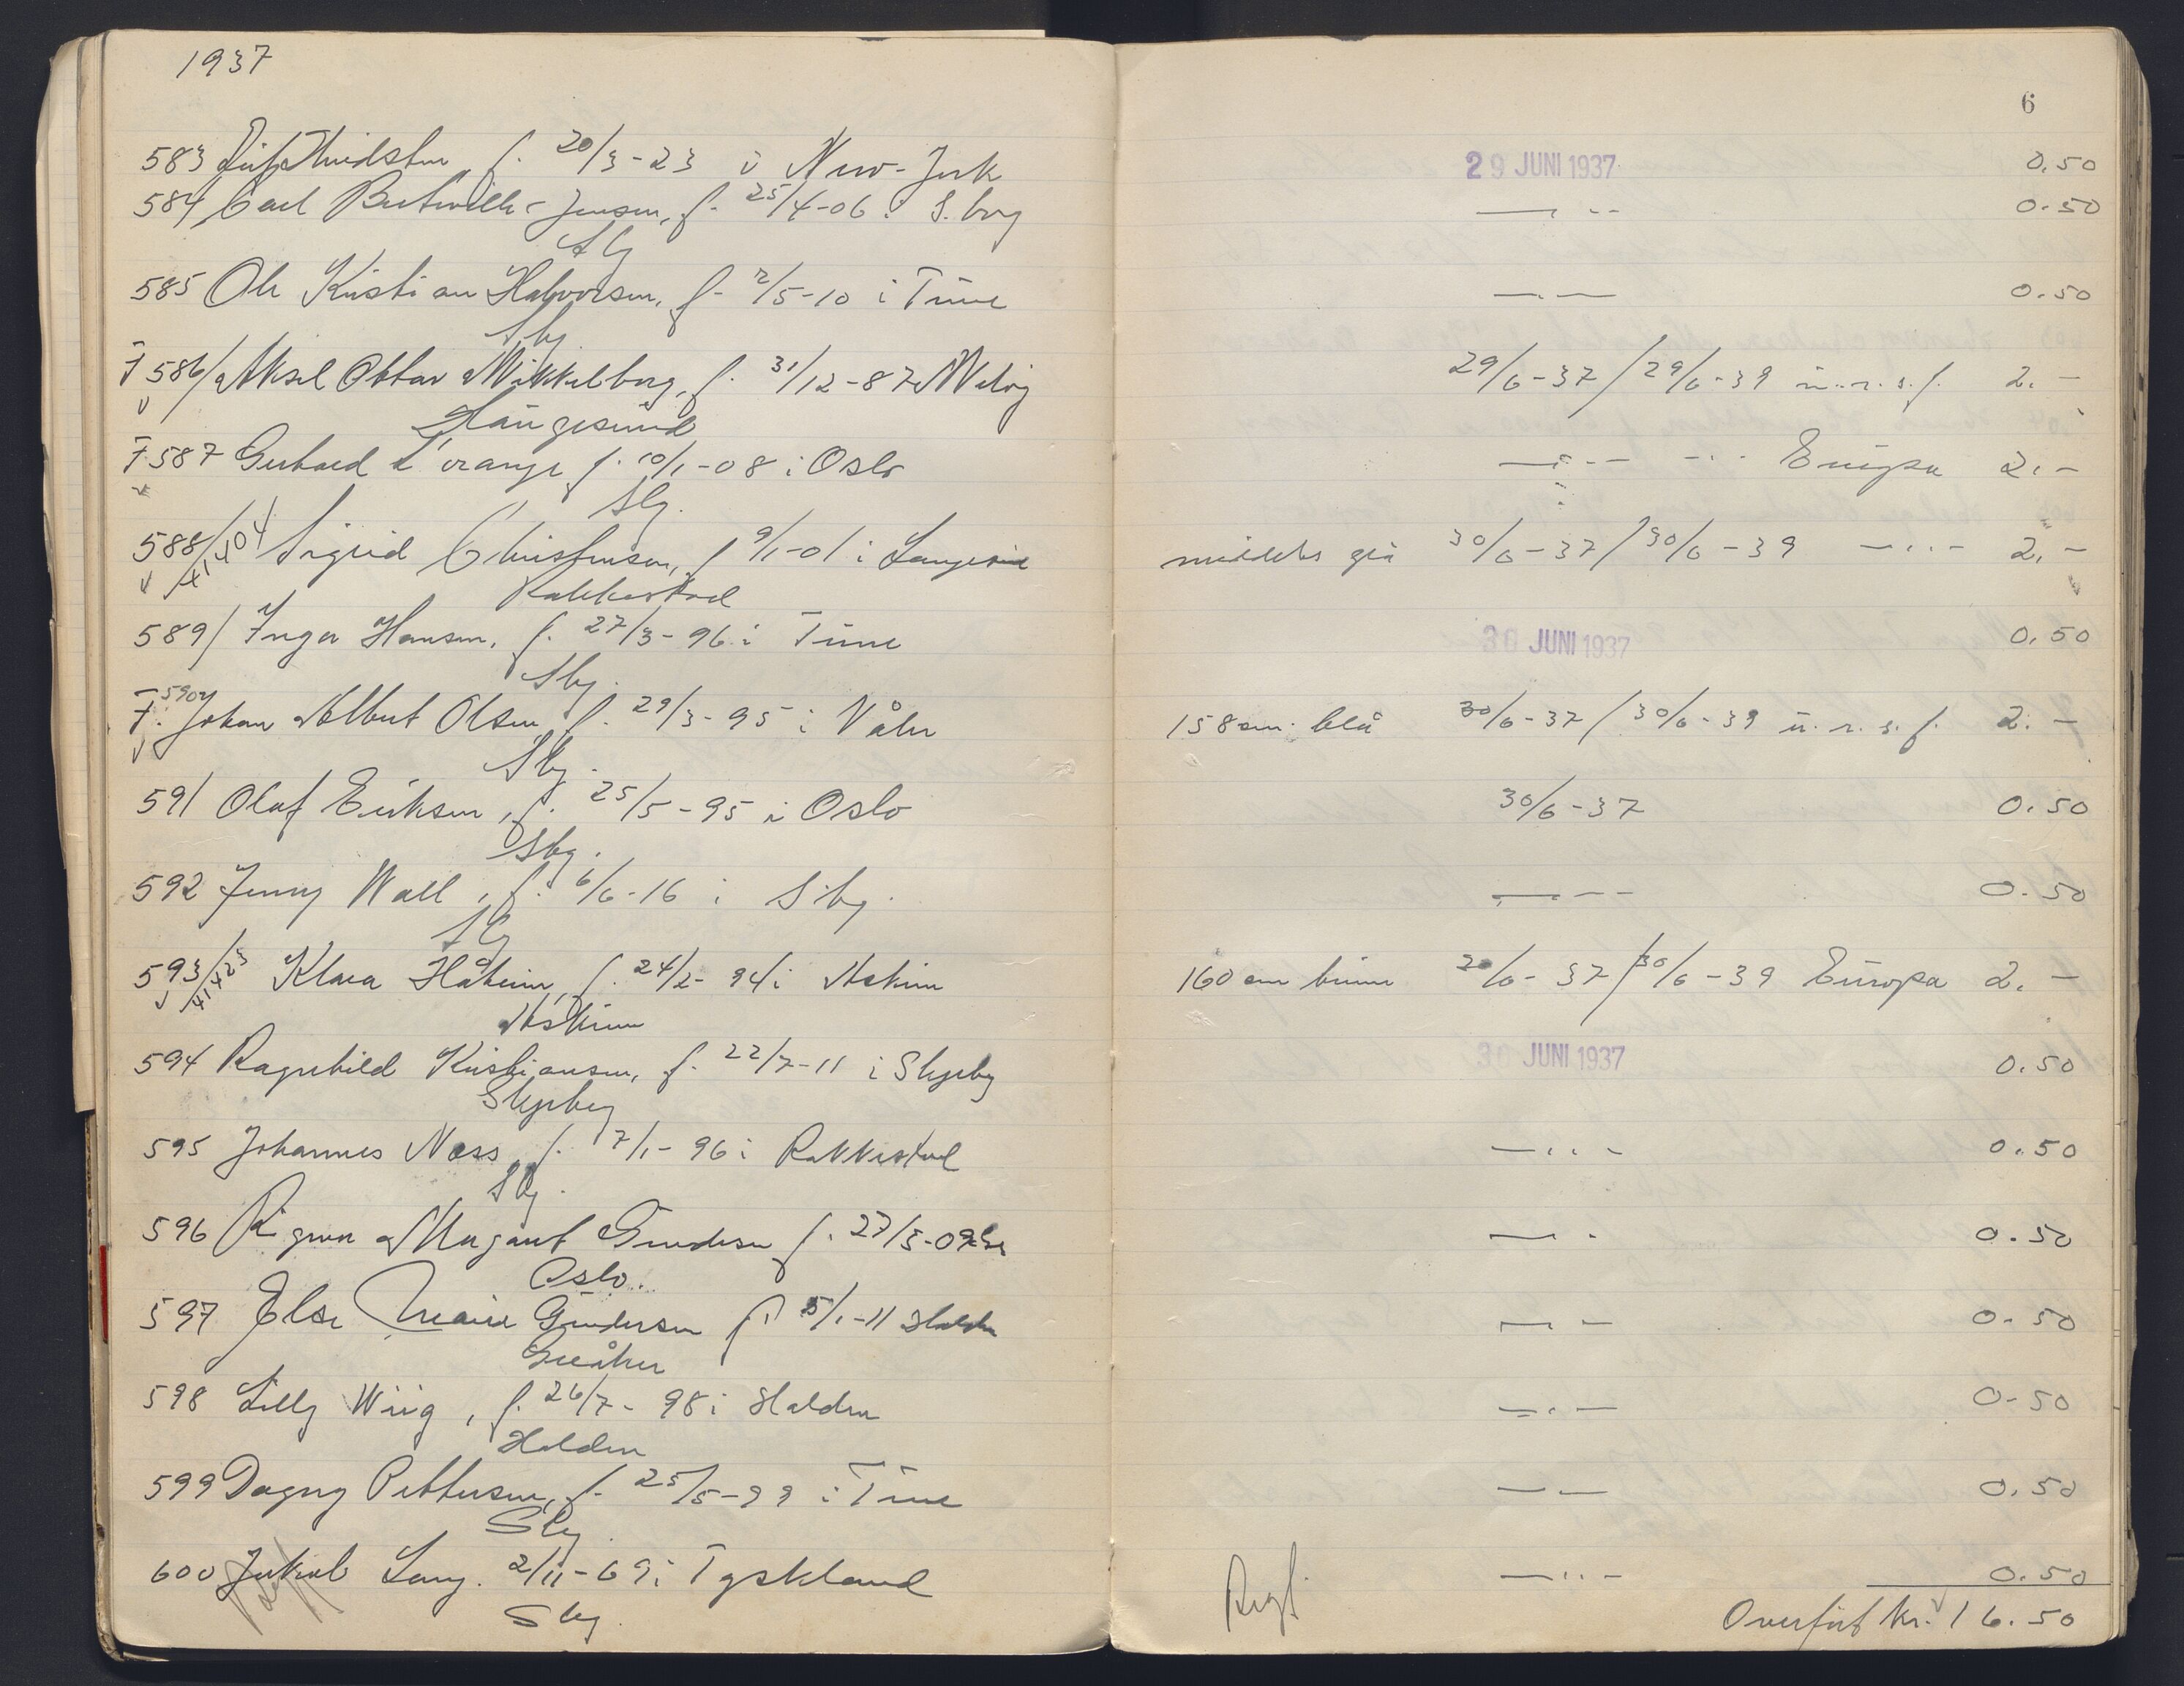 1937
6
583 f. 20/3-23 i New-Jork 29 JUNI 1937 0.50
584 Carl Jensen, f. 25/4-06 i S.borg — " — 0.50
Sbg
585 Ole Kristian Halvorsen, f. 2/5-10 i Tune — " — 0.50
Sbg.
F 586/ Aksel Ottar Mikkelborg, f. 31/12-87 29/6-37/29/6-39 u.r.s.f. 2.-
Haugesund
F 587 Gerhard L'orange f. 10/1-08 i Oslo — " — Europa 2.-
Sbg.
588/ Sigrid Christensen, f 9/1-01 i middels grå 30/6-37/30/6-39 — " — 2.-
Rakkestad
589/ Inger Hansen, f. 27/3-96 i Tune 30 JUNI 1937 0.50
Sbg.
F. 590/ Johan Albert Olsen, f. 29/3-95 i Våler 158 cm. blå 30/6-37/30/6-39 u.r.s.f. 2.-
Sbg.
591 Olaf Eriksen, f. 25/5-95 i Oslo 30/6-37 0.50
Sbg.
592 Jenny Wall, f. 6/6-16 i Sbg. — " — 0.50
Sbg
593/ Klara Håheim, f. 24/2-94 i Askim 160 cm brune 30/6-37/30/6-39 Europa 2.-
Askim
594 Ragnhild Kristiansen, f. 22/7-11 i Skjeberg 30 JUNI 1937 0.50
Skjeberg
595 Johannes Næss f. 7/1-96 i Rakkestad — " — 0.50
Sbg.
596 Margant Gundersen f. 27/5-09 — " — 0.50
Oslo.
597 Else Marie Gundersen f. 5/1-11 Halden — " — 0.50
Greåker
598 Lilly Wiig, f. 26/7-98 i Halden — " — 0.50
Halden
599 Dagny Pettersen, f. 25/5-99 i Tune — " — 0.50
Sbg.
600 Jakob Lang. 2/11-69 i Tyskland — " — 0.50
Sbg. Overført kr. 16.50